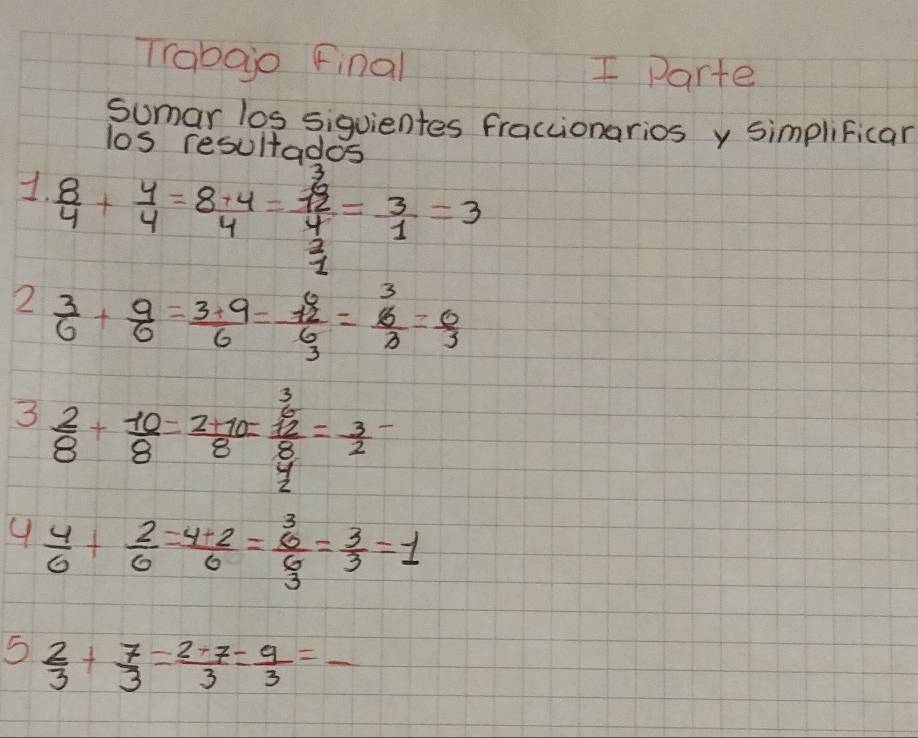 Trabajo Final I Parte
Sumar los siguientes fraccionarios y simplificar
los resultados
1. 8/4 + 4/4 = 8+4/4 = 12/4 = 3/1 = 3
2 3/6 + 9/6 = 3+9/6 = 12/6 = 6/3 = 6/3
3 2/8 + 10/8 = 2+10/8 = 12/8 = 3/2 -
4 4/6 + 2/6 = 4+2/6 = 6/6 = 3/3 = 1
5 2/3 + 7/3 = 2+7/3 = 9/3 = -